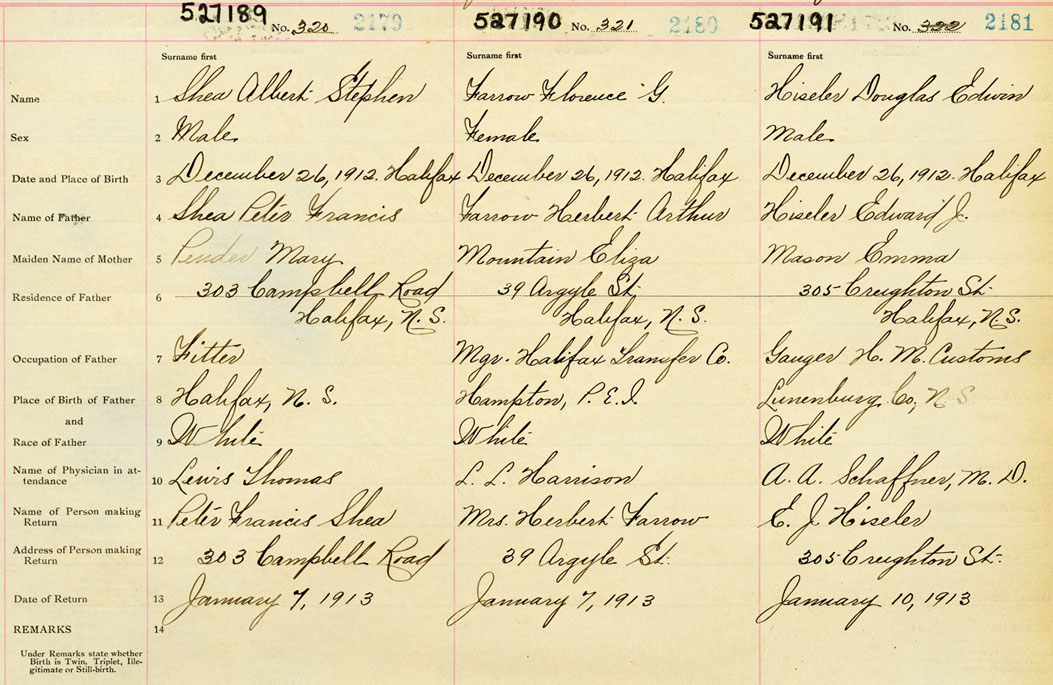 527189 No. 320 2179 527190 No. 321 2180 527191 No. 322 2181
Surname first Surname first Surname first
Name 1 Shea Albert Stephen Farrow Florence G. Hiseler Douglas Edwin
Sex 2 Male Female Male
Date and Place of Birth 3 December 26, 1912. Halifax December 26, 1912. Halifax December 26, 1912. Halifax
Name of Father 4 Shea Peter Francis Farrow Herbert Arthur Hiseler Edward J.
Maiden Name of Mother 5 Pender Mary Mountain Eliza Mason Emma
Residence of Father 6 303 Campbell Road 39 Argyle St. 305 Creighton St.
Halifax, N.S. Halifax, N.S. Halifax, N.S.
Occupation of Father 7 Fitter Mgr. Halifax Transfer Co. Gauger H. M. Customs
Place of Birth of Father 8 Halifax, N. S. Hampton, P.E.I. Lunenburg Co, N.S.
and
Race of Father 9 White White White
Name of Physician in at-
tendance 10 Lewis Thomas L. L. Harrison A. A. Schaffner, M. D.
Name of Person making
Return 11 Peter Francis Shea Mrs. Herbert Farrow E. J. Hiseler
Address of Person making
Return 12 303 Campbell Road 39 Argyle St. 305 Creighton St.
Date of Return 13 January 7, 1913 January 7, 1913 January 10, 1913
REMARKS 14
Under Remarks state whether
Birth is Twin, Triplet, Ille-
gitimate or Still-birth.